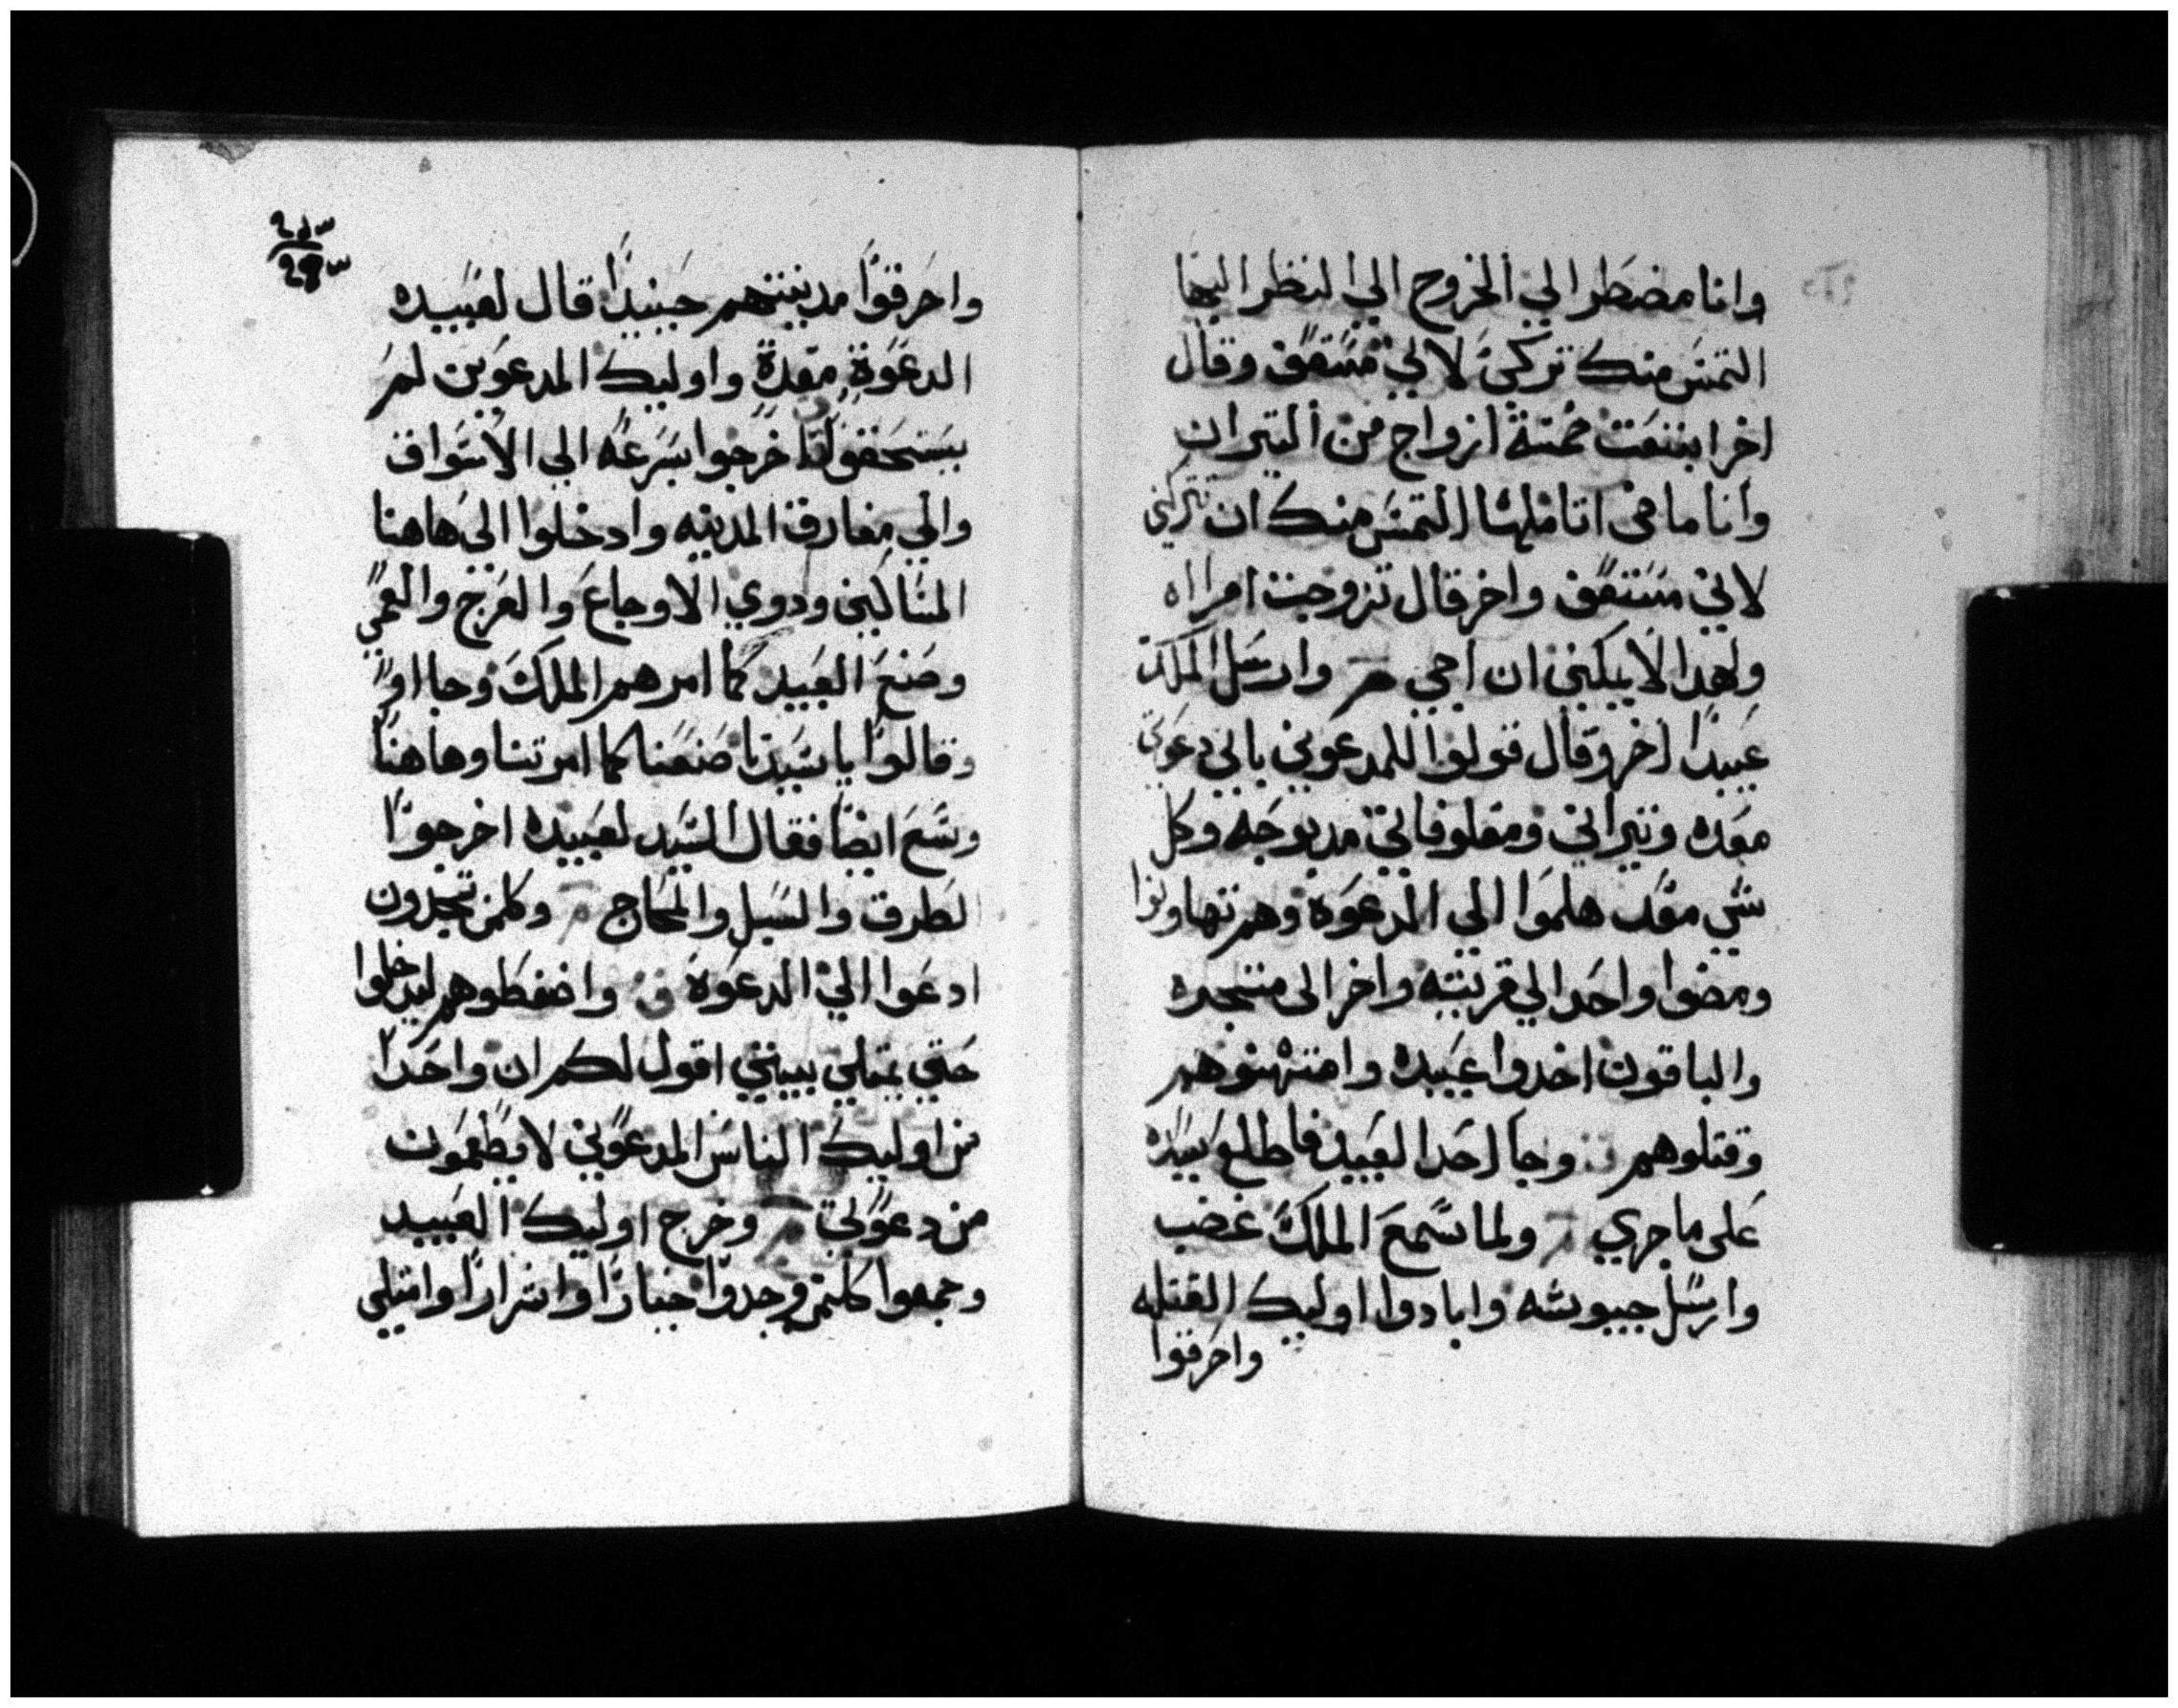 وانا مضطر الي الخروج الي النظر اليها
التمس منك تركي لاني مستعف وقال
اخر ابتعت خمسة ازواج من التيران
وانا ماضي اتاملها التمس منك ان تتركني
لاني مستعف واخر قال تزوجت امراه
ولهدا لا يمكنني ان اجي م وارسل الملك
عبيدا اخر وقال قولوا للمدعوين باني دعوتي
معده وتيراني ومعلوفاتي مدبوحه وكل
شي معد هلموا الي الدعوه وهم تهاونوا
ومضوا واحدا لي قريته واخر الى متجره
والباقون اخدوا عبيده وامتهنوهم
وقتلوهم وجا احد العبيد فاطلع سيده
على ما جري م ولما سمع الملك غضب
وارسل جيوشه وابادوا اوليك القتله
واحرقوا
واحرقوا مدينتهم حينيدا قال لعبيده
الدعوة معدة واوليك المدعوين لم
يستحقوا اخرجوا بسرعه الي الاسواق
والي مفارق المدينه وادخلوا الي هاهنا
المساكين ودوي الاوجاع والعرج والعمي
وصنع العبيد كما امرهم الملك وجااوا
وقالوا يا سيدنا صنعنا كما امرتنا وهاهنا
وسع ايضا فقال السيد لعبيده اخرجوا
الطرق والسبل والمحاج م وكلمن تجدون
ادعوا الي الدعوة واضغطوهم ليدخلوا
حتي يمتلي بيتي اقول لكم ان واحدا
من اوليك الناس المدعوين لا يطعمون
من دعوتي م وخرج اوليك العبيد
وجمعوا كلمن وجدوا خيارا واشرارا وامتلي